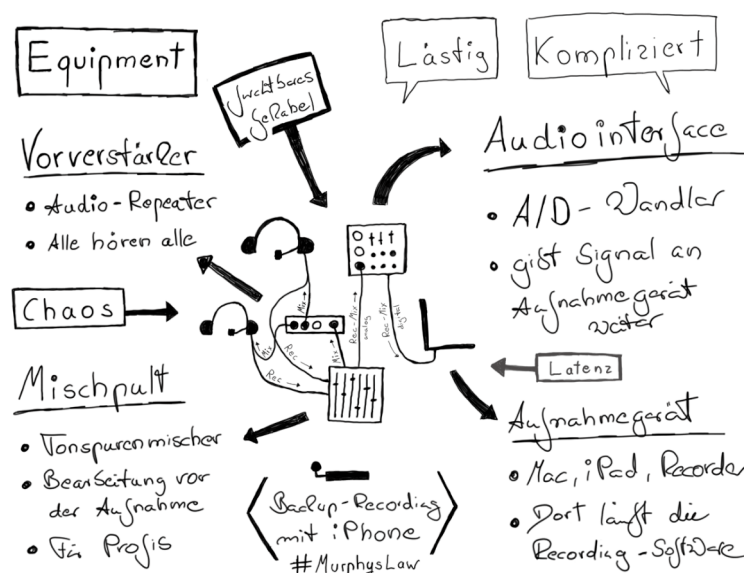 Equipment
Furchtbares
Gekabel
Lästig
Kompliziert
Vorverstärker
• Audio-Repeater
• Alle hören alle
Chaos
Mischpult
• Tonspurenmischer
• Bearbeitung vor
der Aufnahme
• Für Profis
Audiointerface
• A/D-Wandler
• gibt Signal an
Aufnahmegerät
weiter
Latenz
Aufnahmegerät
• Mac, iPad, Recorder
• Dort läuft die
Recording-Software
Mix
Mix
Mix
Rec
Rec
Rec-Mix
analog
Rec-Mix
digital
Backup-Recording
mit iPhone
#MurphysLaw